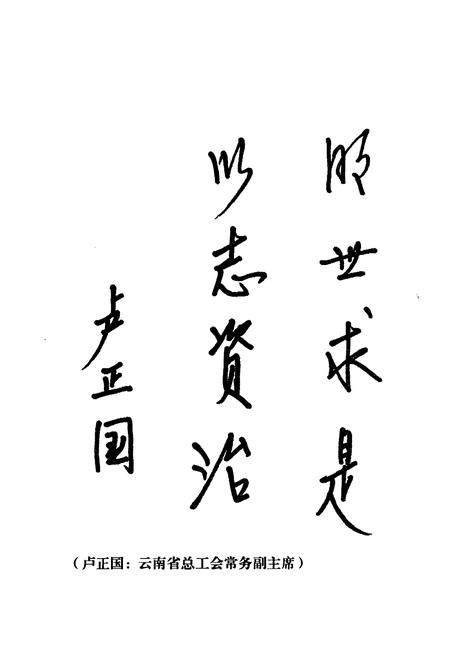 明世求是
以志资治
卢正国
（卢正国：云南省总工会常务副主席）